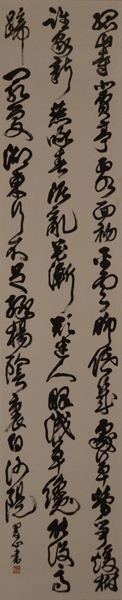 孤山寺北賈亭西水面初平雲腳低幾處早鶯爭暖樹
誰家新燕啄春泥亂花漸欲迷人眼淺草纔能沒馬
蹄最愛湖東行不足綠楊陰裏白沙隄